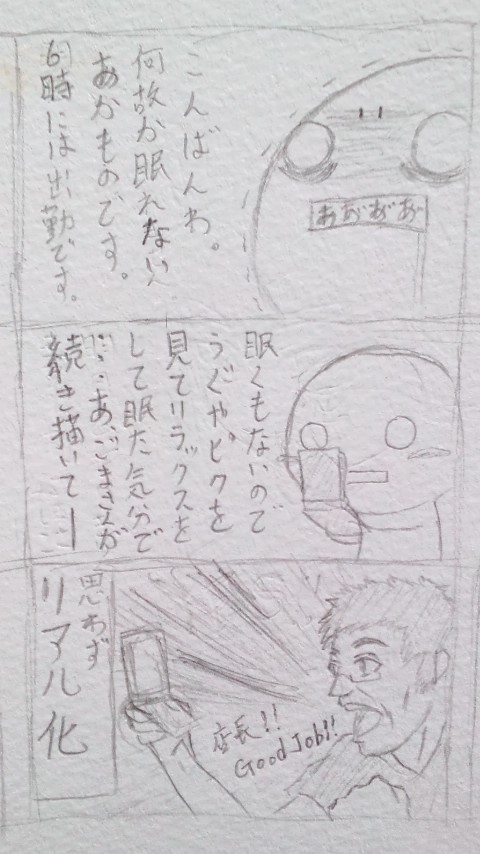 こんばんわ。
何故か眠れない
あかものです。
6時には出勤です。
あ゛あ゛あ゛あ゛
眠くもないので
うぐやピクを
見てリラックスを
して眠た気分で
に…あ、ごまさんが
続き描いてーー
店長!!
Good Job!!
思わず
リアル化